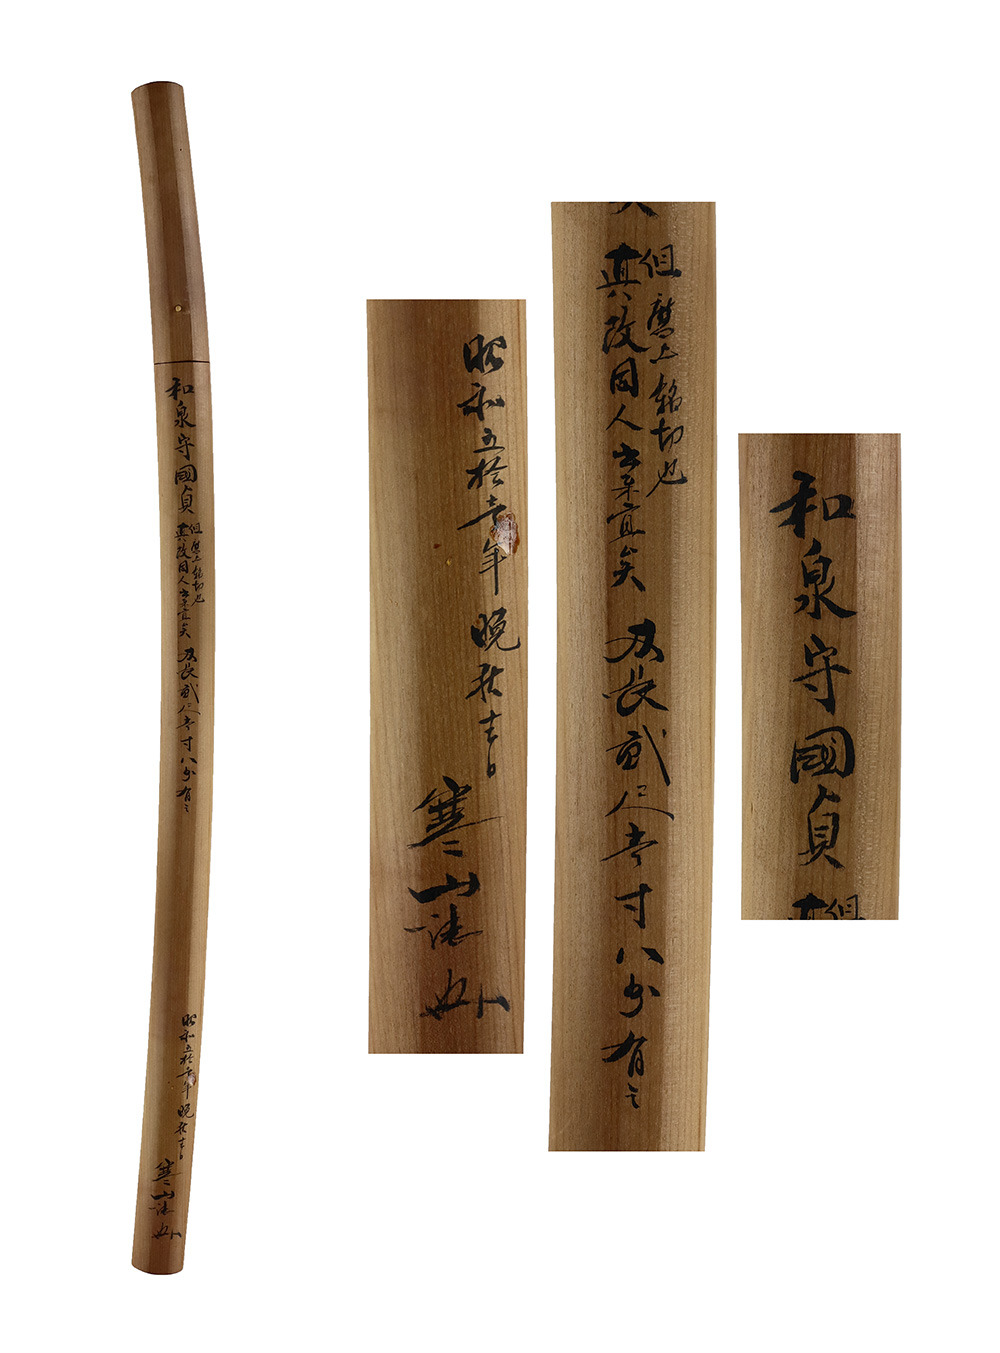 和泉守國貞
但磨上銘切也
真改同人出来宜矣
刃長貳尺壱寸八分有之
昭和五拾壱年晩秋吉日
寒山誌
昭和五拾壱年晩秋吉日
寒山誌
但磨上銘切也
真改同人出来宜矣
刃長貳尺壱寸八分有之
和泉守國貞
但
真